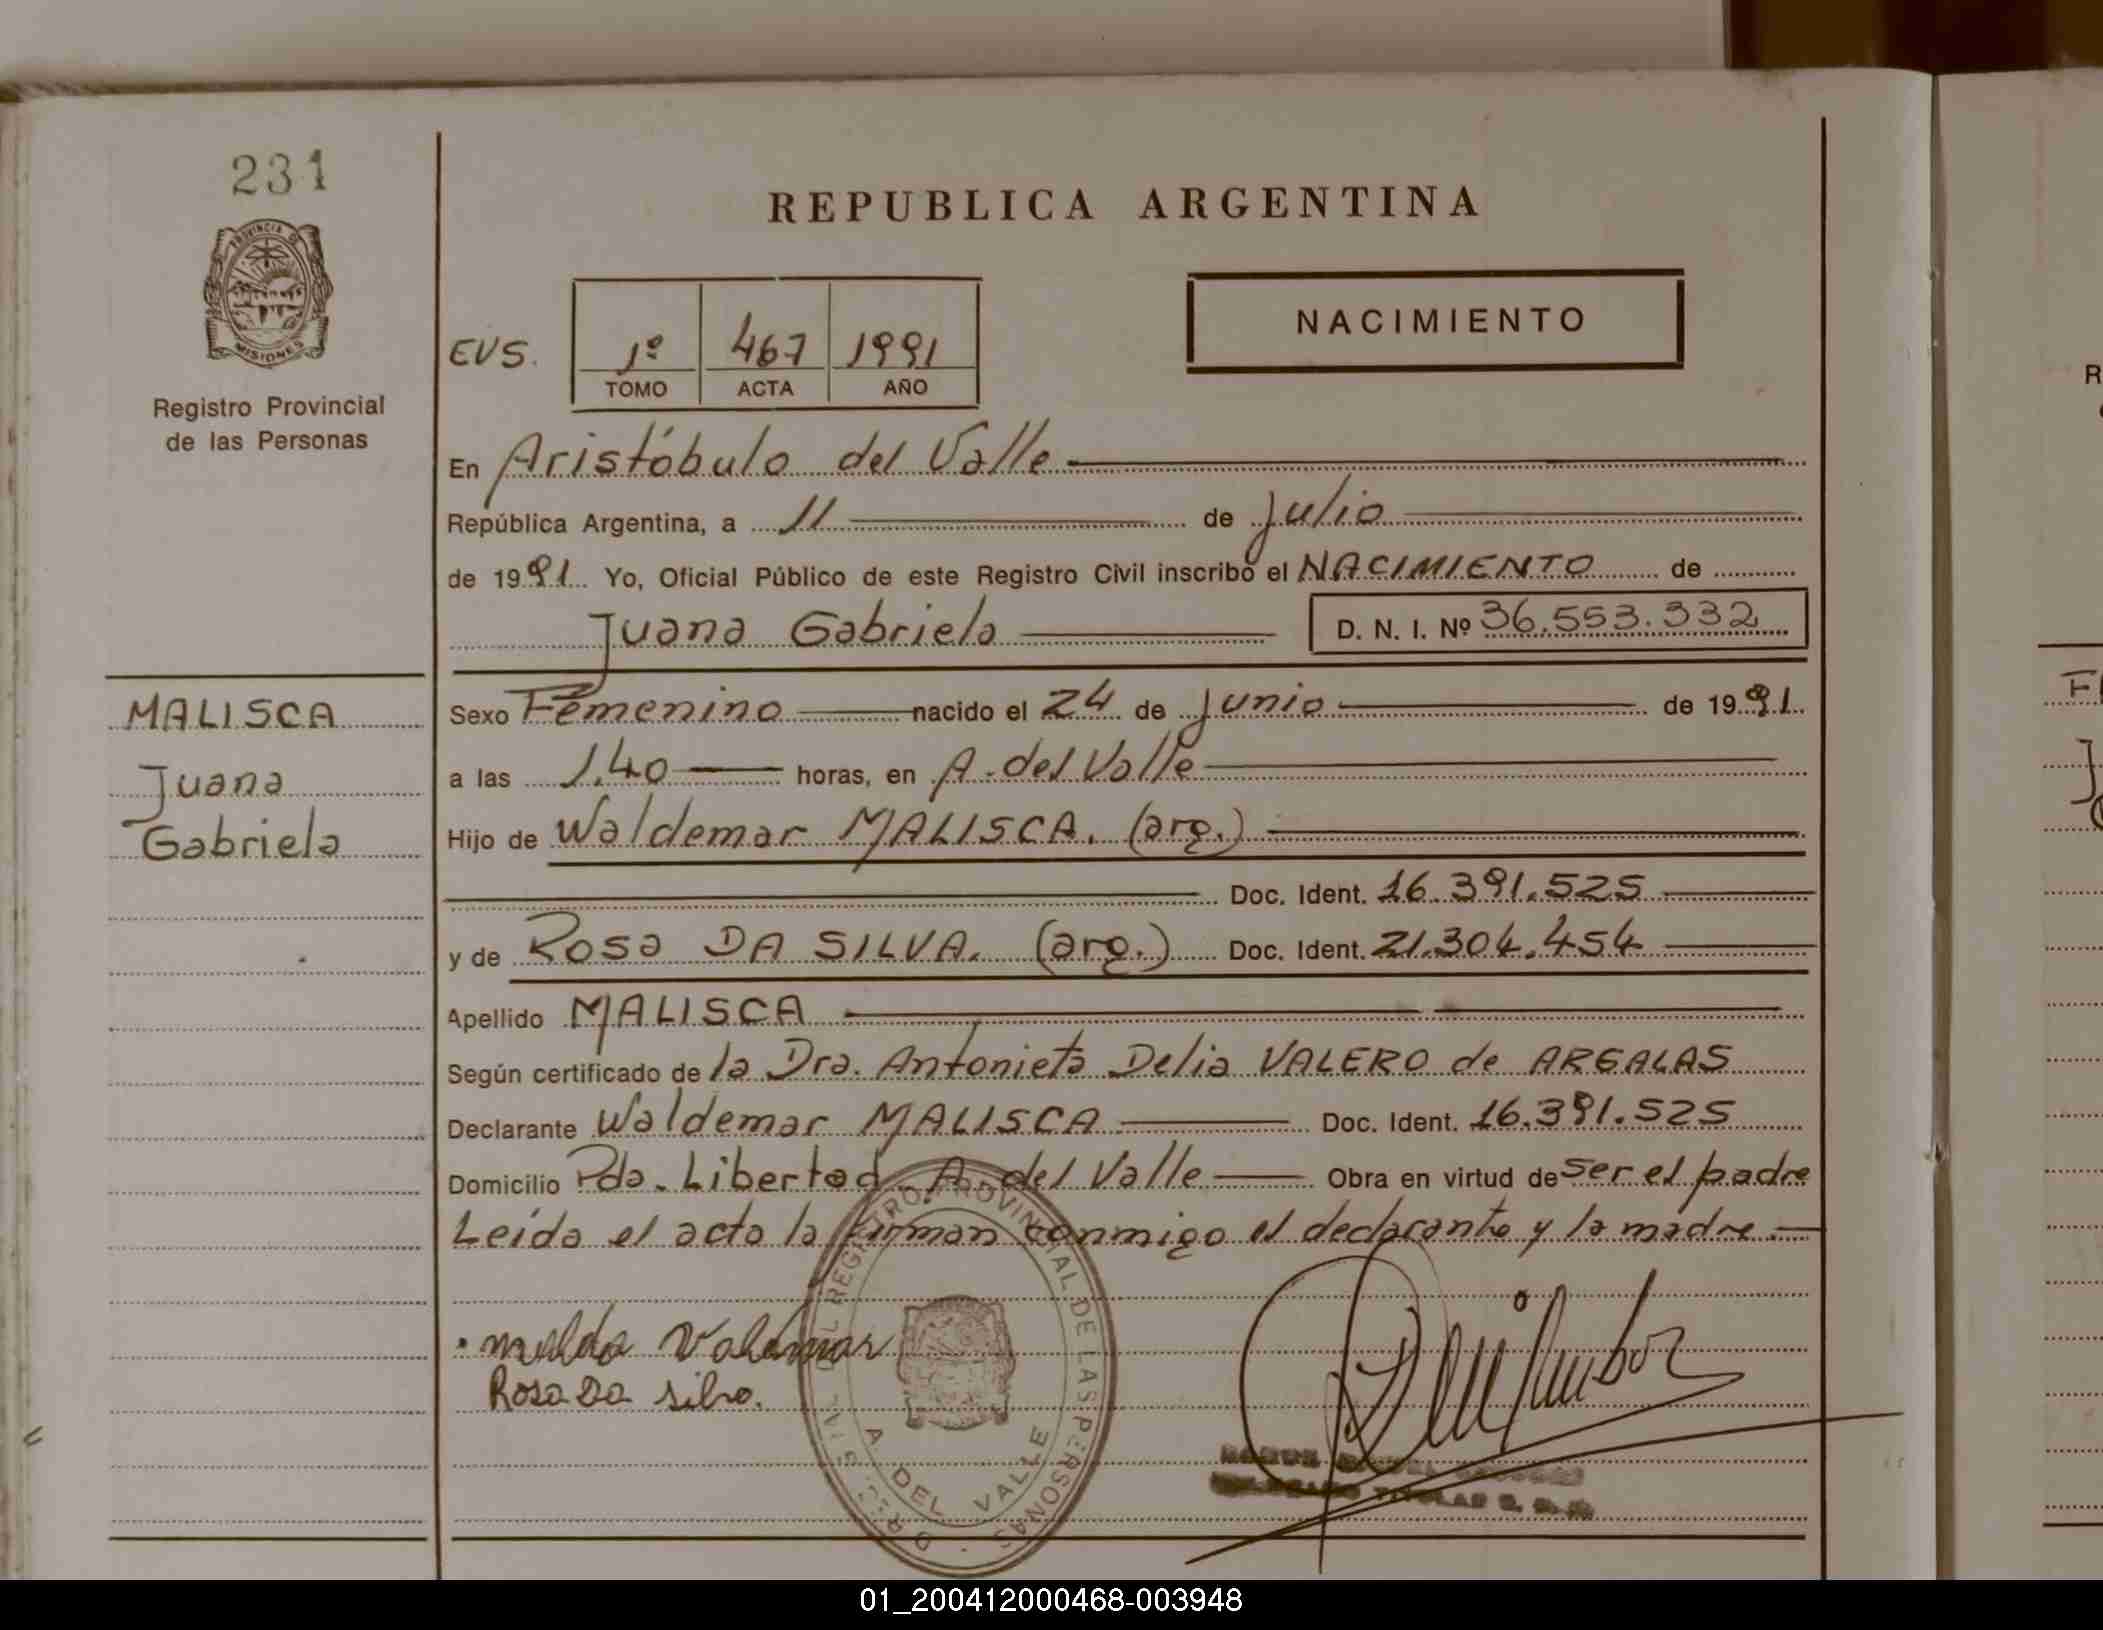 231
PROVINCIA DE
MISIONES
Registro Provincial
de las Personas
REPUBLICA ARGENTINA
EVS.
1º 467 1991
TOMO ACTA AÑO
NACIMIENTO
En Aristóbulo del Valle
República Argentina, a 11 de Julio
de 1991 Yo, Oficial Público de este Registro Civil inscribo el NACIMIENTO de
Juana Gabriela D. N. I. Nº 36.553.332
MALISCA
Juana
Gabriela
Sexo Femenino nacido el 24 de Junio de 1991
a las 1.40 horas, en A. del Valle
Hijo de Waldemar MALISCA. (arg.)
Doc. Ident. 16.391.525
y de Rosa DA SILVA. (arg.) Doc. Ident. 21.304.454
Apellido MALISCA
Según certificado de la Dra. Antonieta Delia VALERO de ARGALAS
Declarante Waldemar MALISCA Doc. Ident. 16.391.525
Domicilio Pda. Libertad - A. del Valle Obra en virtud de ser el padre
Leída el acta la firman conmigo el declarante y la madre.-
Rosa Da silva.
REGISTRO PROVINCIAL DE LAS PERSONAS
A DEL VALLE
TITULAR
01_200412000468-003948